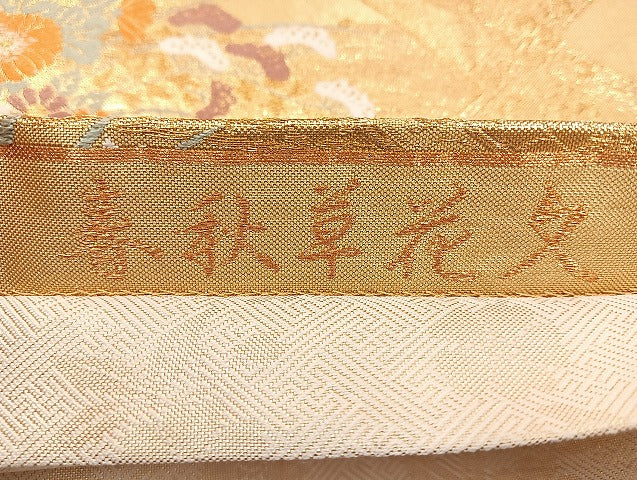 春秋草花文